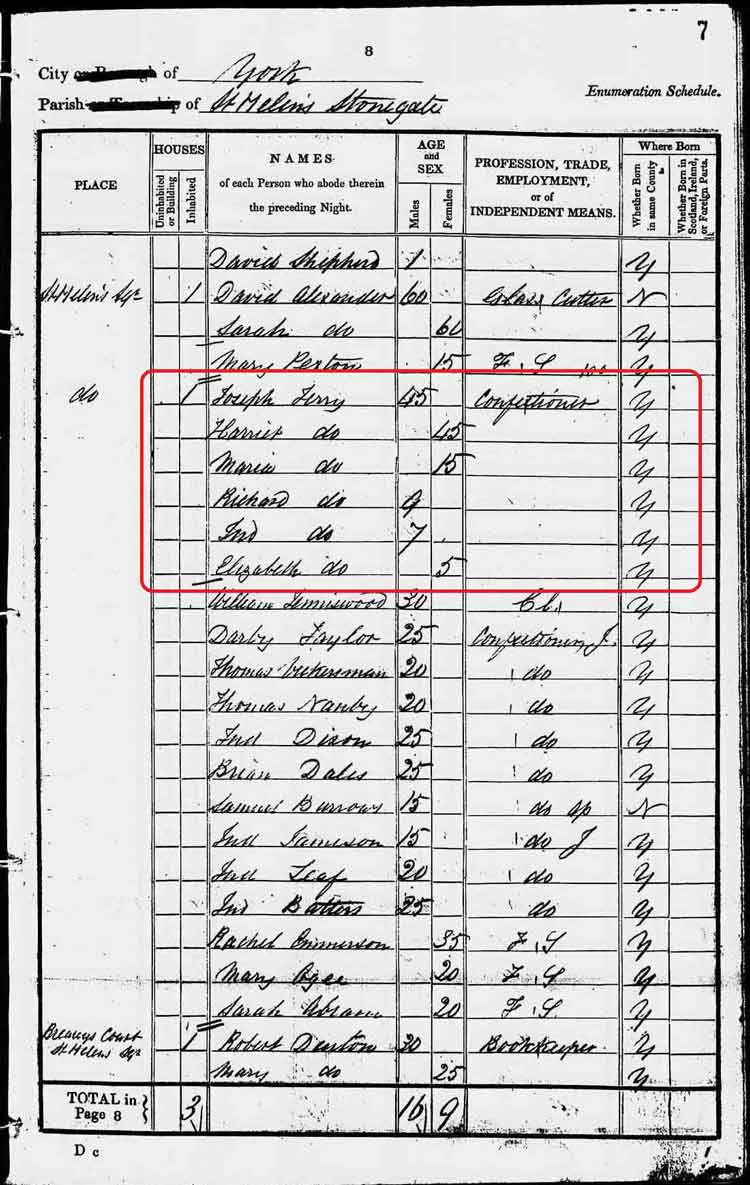 7
8
City or Borough of York
Enumeration Schedule.
Parish or Township of St Helens Stonegate
PLACE
HOUSES
Uninhabited or Building
Inhabited
NAMES
of each Person who abode therein
the preceding Night.
AGE
and
SEX
Males
Females
PROFESSION, TRADE,
EMPLOYMENT,
or of
INDEPENDENT MEANS.
Where Born
Whether Born in same County
Whether Born in Scotland, Ireland, or Foreign Parts.
David Shepherd 1 Y
St Helen's Sqr 1 David Alexander 60 Glass Cutter N
Sarah do 60 Y
Mary Pexton 15 F. S Y
do 1 Joseph Terry 45 Confectioner Y
Harriet do 45 Y
Maria do 15 Y
Richard do 9 Y
Jno do 7 Y
Elizabeth do 5 Y
William 30 Cl. Y
Darby Taylor 25 Confectioner J. Y
Thomas 20 do Y
Thomas Nanby 20 do Y
Jno Dixon 25 do Y
Brian Dales 25 do Y
Samuel Burrows 15 do ap N
Jno Jameson 15 do J Y
Jno Leaf 20 do Y
Jno Batters 25 do Y
Rachel Emmerson 35 F. S Y
Mary 20 F. S Y
Sarah Abram 20 F. S Y
Court
St Helens Sqr 1 Robert Denton 30 Bookkeeper Y
Mary do 25 Y
TOTAL in
Page 8 } 3 16 9
D c